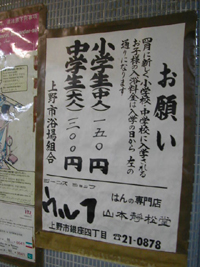 お願い
四月に新しく小学校、中学校に入学される
お子様の入浴料金は入学の日から左の
通りになります
小学生(中人)一五〇円
中学生(大人)三〇〇円
上野市浴場組合
はんの専門店
山本静松堂
上野市銀座四丁目 ☎21-0878